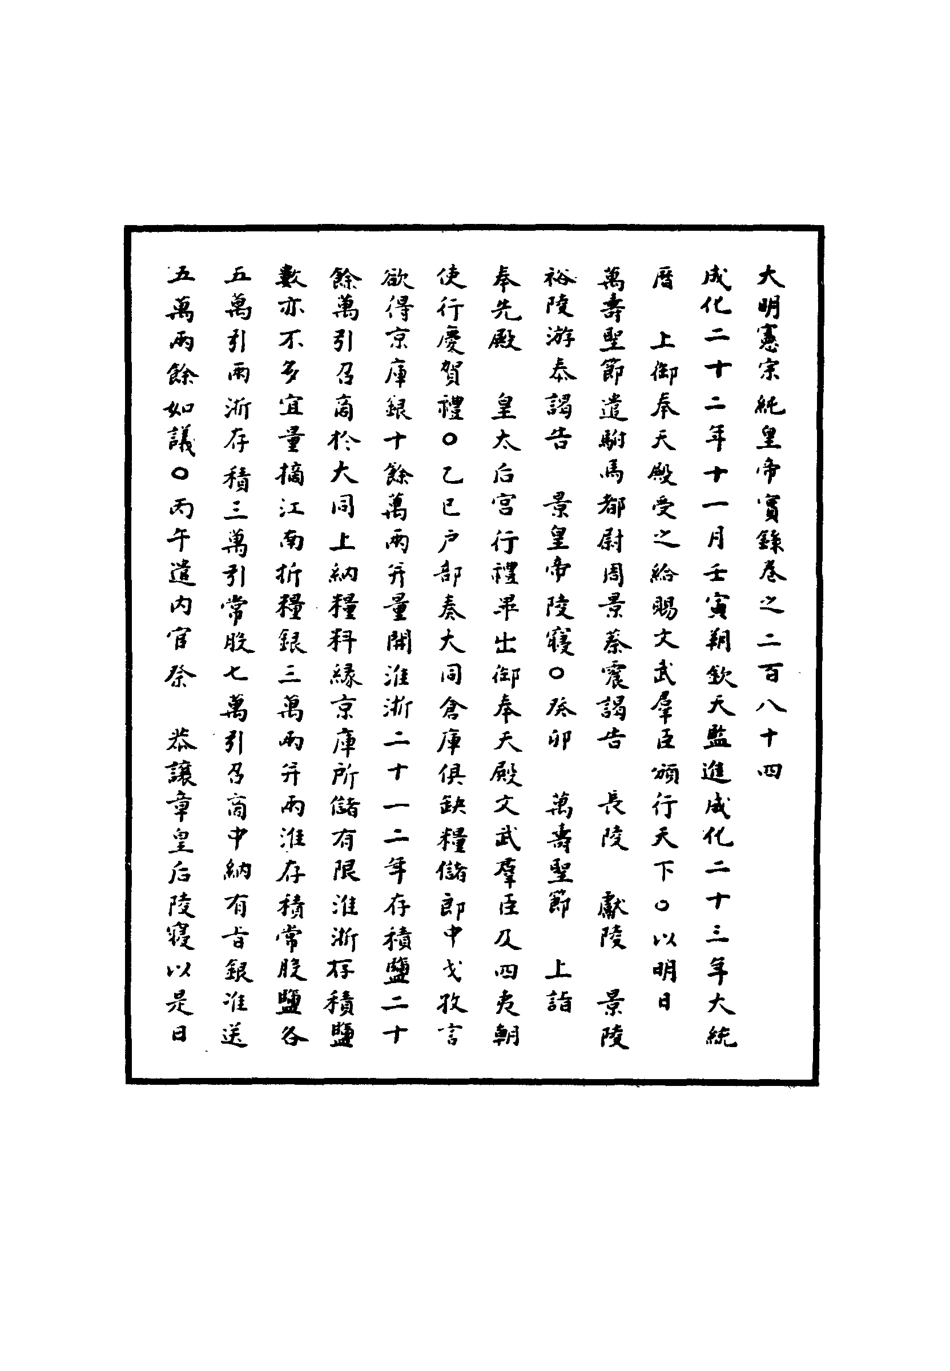 大明憲宗純皇帝實錄卷之二百八十四
成化二十二年十一月壬寅朔欽天監進成化二十三年大統
曆　上御奉天殿受之給賜文武羣臣頒行天下○以明日
萬壽聖節遣駙馬都尉周景蔡震謁告　長陵　獻陵　景陵
裕陵游泰謁告　景皇帝陵寢○癸卯　萬壽聖節　上詣
奉先殿　皇太后宮行禮畢出御奉天殿文武羣臣及四夷朝
使行慶賀禮○乙巳户部奏大同倉庫俱缺糧儲郎中戈孜言
欲得京庫銀十餘萬兩并量開淮浙二十一二年存積鹽二十
餘萬引召商於大同上納糧料緣京庫所儲有限淮浙存積鹽
數亦不多宜量摘江南折糧銀三萬兩并兩淮存積常股鹽各
五萬引兩浙存積三萬引常股七萬引召商中納有旨銀准送
五萬兩餘如議○丙午遣内官祭　恭讓章皇后陵寢以是日